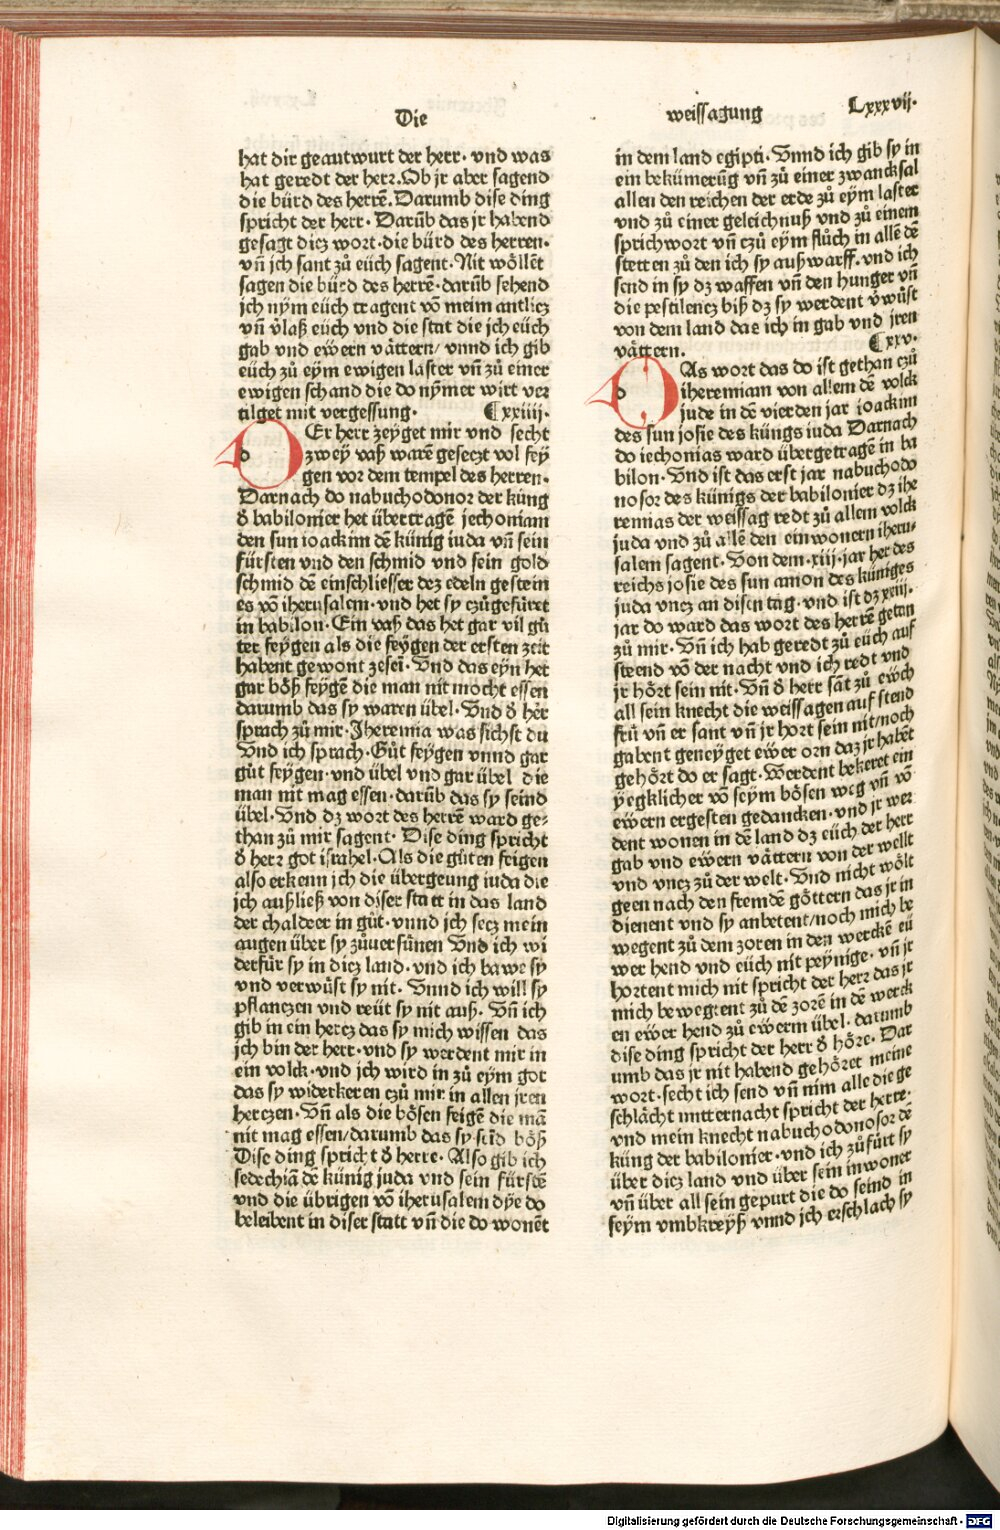 Die
weissagung
Lxxxvij.
hat dir geantwurt der herr. vnd was
hat geredt der herr. Ob jr aber sagend
die bürd des herrē. Darumb dise ding
spricht der herr. Darūb das jr habend
gesagt dicz wort. die bürd des herren.
vñ jch sant zů eüch sagent. Nit wöllēt
sagen die bürd des herrē. darūb sehend
jch nȳm eüch tragent vō meim antlicz
vñ v̓laß eüch vnd die stat die jch eüch
gab vnd ewern vättern/ vnnd ich gib
eüch zů eym ewigen laster vñ zů einer
ewigen schand die do nȳmer wirt ver
tilget mit vergessung. ¶xxiiij.
DEr herr zeyget mir vnd secht
zwey vaß warē geseczt vol fey
gen vor dem tempel des herren.
Darnach do nabuchodonor der küng
d̓ babilonier het übertragē jechoniam
den sun ioackim dē künig iuda vñ sein
fürsten vnd den schmid vnd sein gold
schmid dē einschliesser dez edeln gestein
es vō iherusalem. vnd het sy czůgefüret
in babilon. Ein vaß das het gar vil gů
ter feygen als die feygen der ersten zeit
habent gewont zeseī. Vnd das eyn het
gar böß feygē die man nit mocht essen
darumb das sy waren übel. Vnd d̓ her̓
sprach zů mir. Jheremia was sichst du
Vnd ich sprach. Gůt feygen vnnd gar
gůt feygen. vnd übel vnd gar übel die
man nit mag essen. darūb das sy seind
übel. Vnd dz wort des herrē ward ge-
than zů mir sagent. Dise ding spricht
d̓ herr got israhel. Als die gůten feigen
also erkenn jch die übergeung iuda die
jch außließ von diser statt in das land
der chaldeer in gůt. vnnd jch secz mein
augen über sy zůuersünen Vnd ich wi
derfür sy in dicz land. vnd ich bawe sy
vnd verwüst sy nit. Vnnd ich will sy
pflanczen vnd reüt sy nit auß. Vñ ich
gib in ein hercz das sy mich wissen das
jch bin der herr. vnd sy werdent mir in
ein volck. vnd jch wird in zů eym got
das sy widerkeren czů mir in allen jren
herczen. Vñ als die bösen feigē die mā
nit mag essen/darumb das sy seīd böß
Dise ding spricht d̓ herre. Also gib ich
sedechiā dē künig juda vnd sein fürstē
vnd die übrigen vō iherusalem dye do
beleibent in diser statt vñ die do wonēt
in dem land egipti. Vnnd ich gib sy in
ein bekümerūg vñ zů einer zwancksal
allen den reichen der erde zů eym laster
vnd zů einer geleichnuß vnd zů einem
sprichwort vñ czů eym flůch in allē dē
stetten zů den ich sy außwarff. vnd ich
send in sy dz waffen vñ den hunger vñ
die pestilencz biß dz sy werdent v̓wüst
von dem land das ich in gab vnd jren
vättern. ¶xxv.
DAs wort das do ist gethan czů
iheremiam von allem dē volck
jude in dē vierden jar ioackim
des sun josie des küngs iuda Darnach
do iechonias ward übergetragē in ba
bilon. Vnd ist das erst jar nabuchodo
nosor des künigs der babilonier dz ihe
remias der weissag redt zů allem volck
juda vnd zů allē den einwonern iheru-
salem sagent. Von dem .xiij. jar her des
reichs josie des sun amon des küniges
juda vncz an disen tag. vnd ist dz xxiij.
jar do ward das wort des herrē getan
zů mir. Vñ ich hab geredt zů eüch auf
steend vō der nacht vnd ich redt vnd
jr hört sein nit. Vñ d̓ herr sāt zů ewch
all sein knecht die weissagen auf stend
frů vñ er sant vñ jr hort sein nit/noch
gabent geneyget ewer orn daz jr habēt
gehört do er sagt. Werdent bekeret ein
yegklicher vō seym bösen weg vñ vō
ewern ergesten gedancken. vnd jr wer
dent wonen in dē land dz eüch der herr
gab vnd ewern vättern von der wellt
vnd vncz zů der welt. Vnd nicht wölt
geen nach den fremdē göttern das jr in
dienent vnd sy anbetent/noch mich be
wegent zů dem zoren in den werckē eü
wer hend vnd eüch nit peynige. vñ jr
hortent mich nit spricht der herr das jr
mich bewegtent zů dē zorē in dē werck
en ewer hend zů ewerm übel. darumb
dise ding spricht der herr d̓ höre. Dar
umb das jr nit habend gehöret meine
wort. secht ich send vñ nim alle die ge
schlächt mitternacht spricht der herre.
vnd mein knecht nabuchodonosor dē
küng der babilonier. vnd ich zůfürt sy
über dicz land vnd über sein inwoner
vñ über all sein gepurt die do seind in
seym vmbkreyß vnnd jch erschlach sy
Digitalisierung gefördert durch die Deutsche Forschungsgemeinschaft - DFG